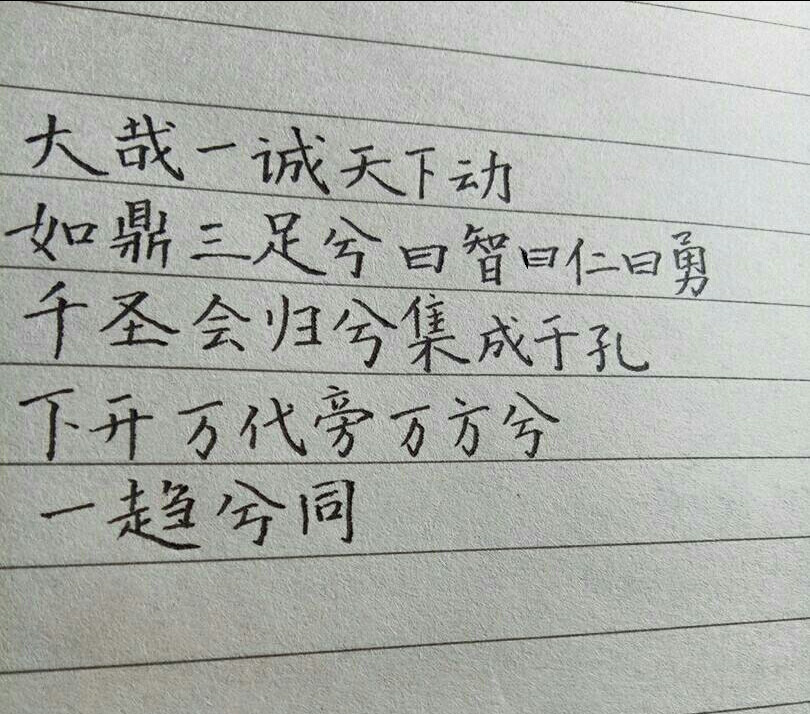 大哉一诚天下动
如鼎三足兮曰智曰仁曰勇
千圣会归兮集成于孔
下开万代旁万方兮
一趋兮同